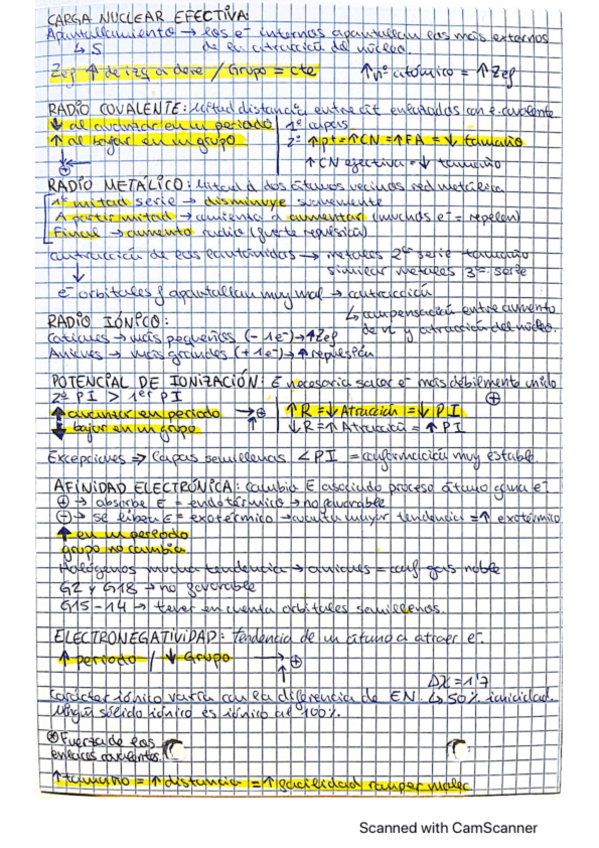 CARGA NUCLEAR EFECTIVA:
Apantallamiento → los e⁻ internos apantallan los más externos
↳ S de la atracción del núcleo.
Zef ↑ de izq a dere / Grupo = cte ↑ nº atómico = ↑ Zef
RADIO COVALENTE: Mitad distancia entre át enlazados con e. covalente
↓ al avanzar en un periodo 1º capas
↑ al bajar en un grupo 2º ↑pt = ↑CN = ↑FA = ↓ tamaño
↑ CN efectiva = ↓ tamaño
RADIO METÁLICO: Mitad d dos átomos vecinos red metálica
1ª mitad serie → disminuye suavemente
A partir mitad → comienza a aumentar (muchos e⁻ = repelen)
Final → aumento radio (fuerte repulsión)
contracción de los lantánidos → metales 2ª serie tamaño
similar metales 3ª serie
e⁻ orbitales f apantallan muy mal → contracción
↳ compensación entre aumento
RADIO IÓNICO: de n y atracción del núcleo.
Cationes → más pequeños (-1e⁻) → ↑Zef
Aniones → más grandes (+1e⁻) → ↑ repulsión
POTENCIAL DE IONIZACIÓN: E necesaria sacar e⁻ más débilmente unido
2º PI > 1er PI ⊕
↑ avanzar en periodo → ⊕ ↑R = ↓ Atracción = ↓ PI
↓ bajar en un grupo ↑ ↓R = ↑ Atracción = ↑ PI
Excepciones ⇒ Capas semillenas < PI = conformación muy estable.
AFINIDAD ELECTRÓNICA: cambio E asociado proceso átomo gana e⁻
⊕ → absorbe E = endotérmico → no favorable
⊖ → se libera E = exotérmico → cuanta mayor tendencia = ↑ exotérmico
↑ en un periodo
grupo no cambia
Halógenos mucha tendencia → aniones = conf gas noble
G2 y G18 → no favorable
G15-14 → tener en cuenta orbitales semillenos.
ELECTRONEGATIVIDAD: tendencia de un átomo a atraer e⁻.
↑ periodo / ↓ Grupo → ⊕
↑ ΔX = 1'7
Carácter iónico varía con la diferencia de EN. ↳ 50% ionicidad.
Ningún sólido iónico es iónico al 100%.
⊛ Fuerza de los
enlaces covalentes.
↑ tamaño = ↑ distancia = ↑ facilidad romper molec
Scanned with CamScanner